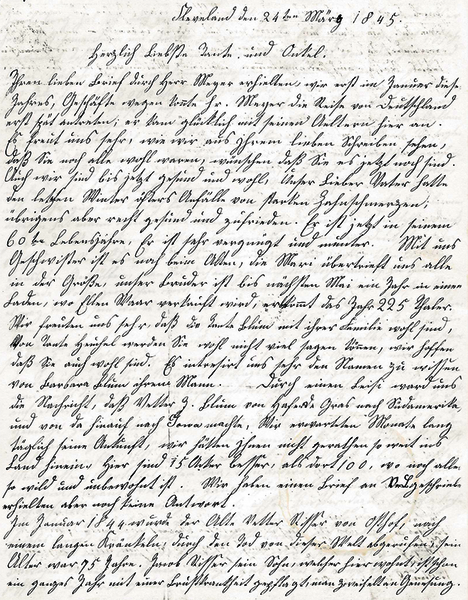 Cleveland den 24ten März 1845.
Herzlich Liebste Tante, und Onkel.
Ihren lieben Brief durch Herr Meyer erhielten, wir erst im Januar dieses
Jahres, Geschäfte wegen konnte Hr. Meyer die Reise von Deutschland
erst spät antreten; er kam glücklich mit seinen Aeltern hier an.
Es freut uns sehr, wie wir aus Ihrem lieben Schreiben sehen,
daß Sie noch alle wohl waren, wünschen daß Sie es jetzt noch sind.
Auch wir sind bis jetzt gesund und wohl, Unser Lieber Vater hatte
den letzten Winter öfters Anfälle von starken Zahnschmerzen;
übrigens aber recht gesund und zufrieden. Er ist jetzt in seinem
60te Lebensjahre, Er ist sehr vergnügt und munter. Mit uns
Geschwister ist es noch beim Alten, die Meri übertrieft uns alle
in der Größe, unser Bruder ist bis nächsten Mai ein Jahr in einem
Laden, wo Ellen Waar verkauft wird, er bekommt das Jahr 225 Thaler.
Wir freuten uns sehr, daß Tante Blüm mit ihrer Familie wohl sind,
Von Tante Henschel werden Sie wohl nicht viel sagen können, wir hoffen
daß Sie auch wohl sind. Es intresirt uns sehr den Namen zu wissen
von Barbara Blüm ihrem Mann. Durch einen Leisi ward uns
die Nachricht, daß Vetter J. Blüm von nach Südamerika
und von da hinauf nach Iowa machte, Wir erwarteten Monate lang
täglich seine Ankunft, wir hätten Ihnen nicht gerathen so weit ins
Land hinein, Hier sind 15 Aker besser, als dort 100, wo noch alles
so wild und unbewohnt ist. Wir haben einen Brief an geschrieben
erhielten aber noch keine Antwort.
Im Januar 1844 wurde der Alte Vetter Risser von Osthof, nach
einem langen Kränkeln, durch den Tod von dieser Welt abgerufen; sein
Alter war 75 Jahre. Jacob Risser sein Sohn, welcher hier wohnt; ist schon
ein ganzes Jahr mit einer Brustkrankheit geplagt, man zweifelt an Genesung.